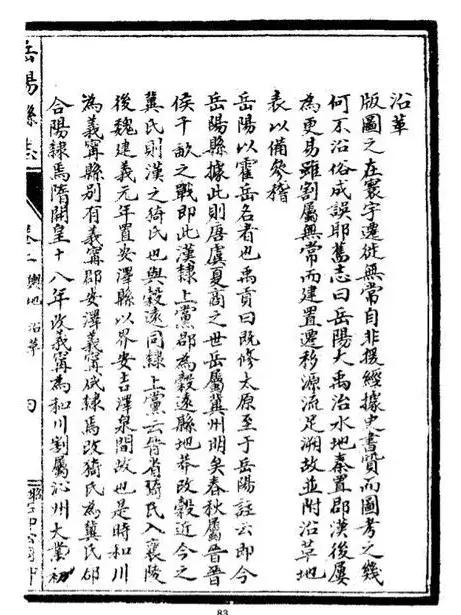 沿革
版圖之在寰宇遷徙無常自非援經據史書質而圖考之幾
何不沿俗成誤耶舊志曰岳陽大禹治水地秦置郡漢後屢
為更易雖割屬無常而建置遷移源流足溯故並附沿革地
表以備參稽
岳陽以霍岳名者也禹貢曰既修太原至于岳陽註云即今
岳陽縣據此則唐虞夏商之世岳屬冀州明矣春秋屬晉晉
侯千畝之戰即此漢隸上黨郡為穀遠縣地莽改穀近今之
冀氏則漢之猗氏也與穀遠同隸上黨云晉省猗氏入襄陵
後魏建義元年置安澤縣以界安吉澤泉間故也是時和川
為義寧縣別有義寧郡安澤義寧咸隸焉改猗氏為冀氏郃
合陽隸焉隋開皇十八年改義寧為和川割屬沁州大業初
岳陽縣志
卷一 輿地 沿革
83